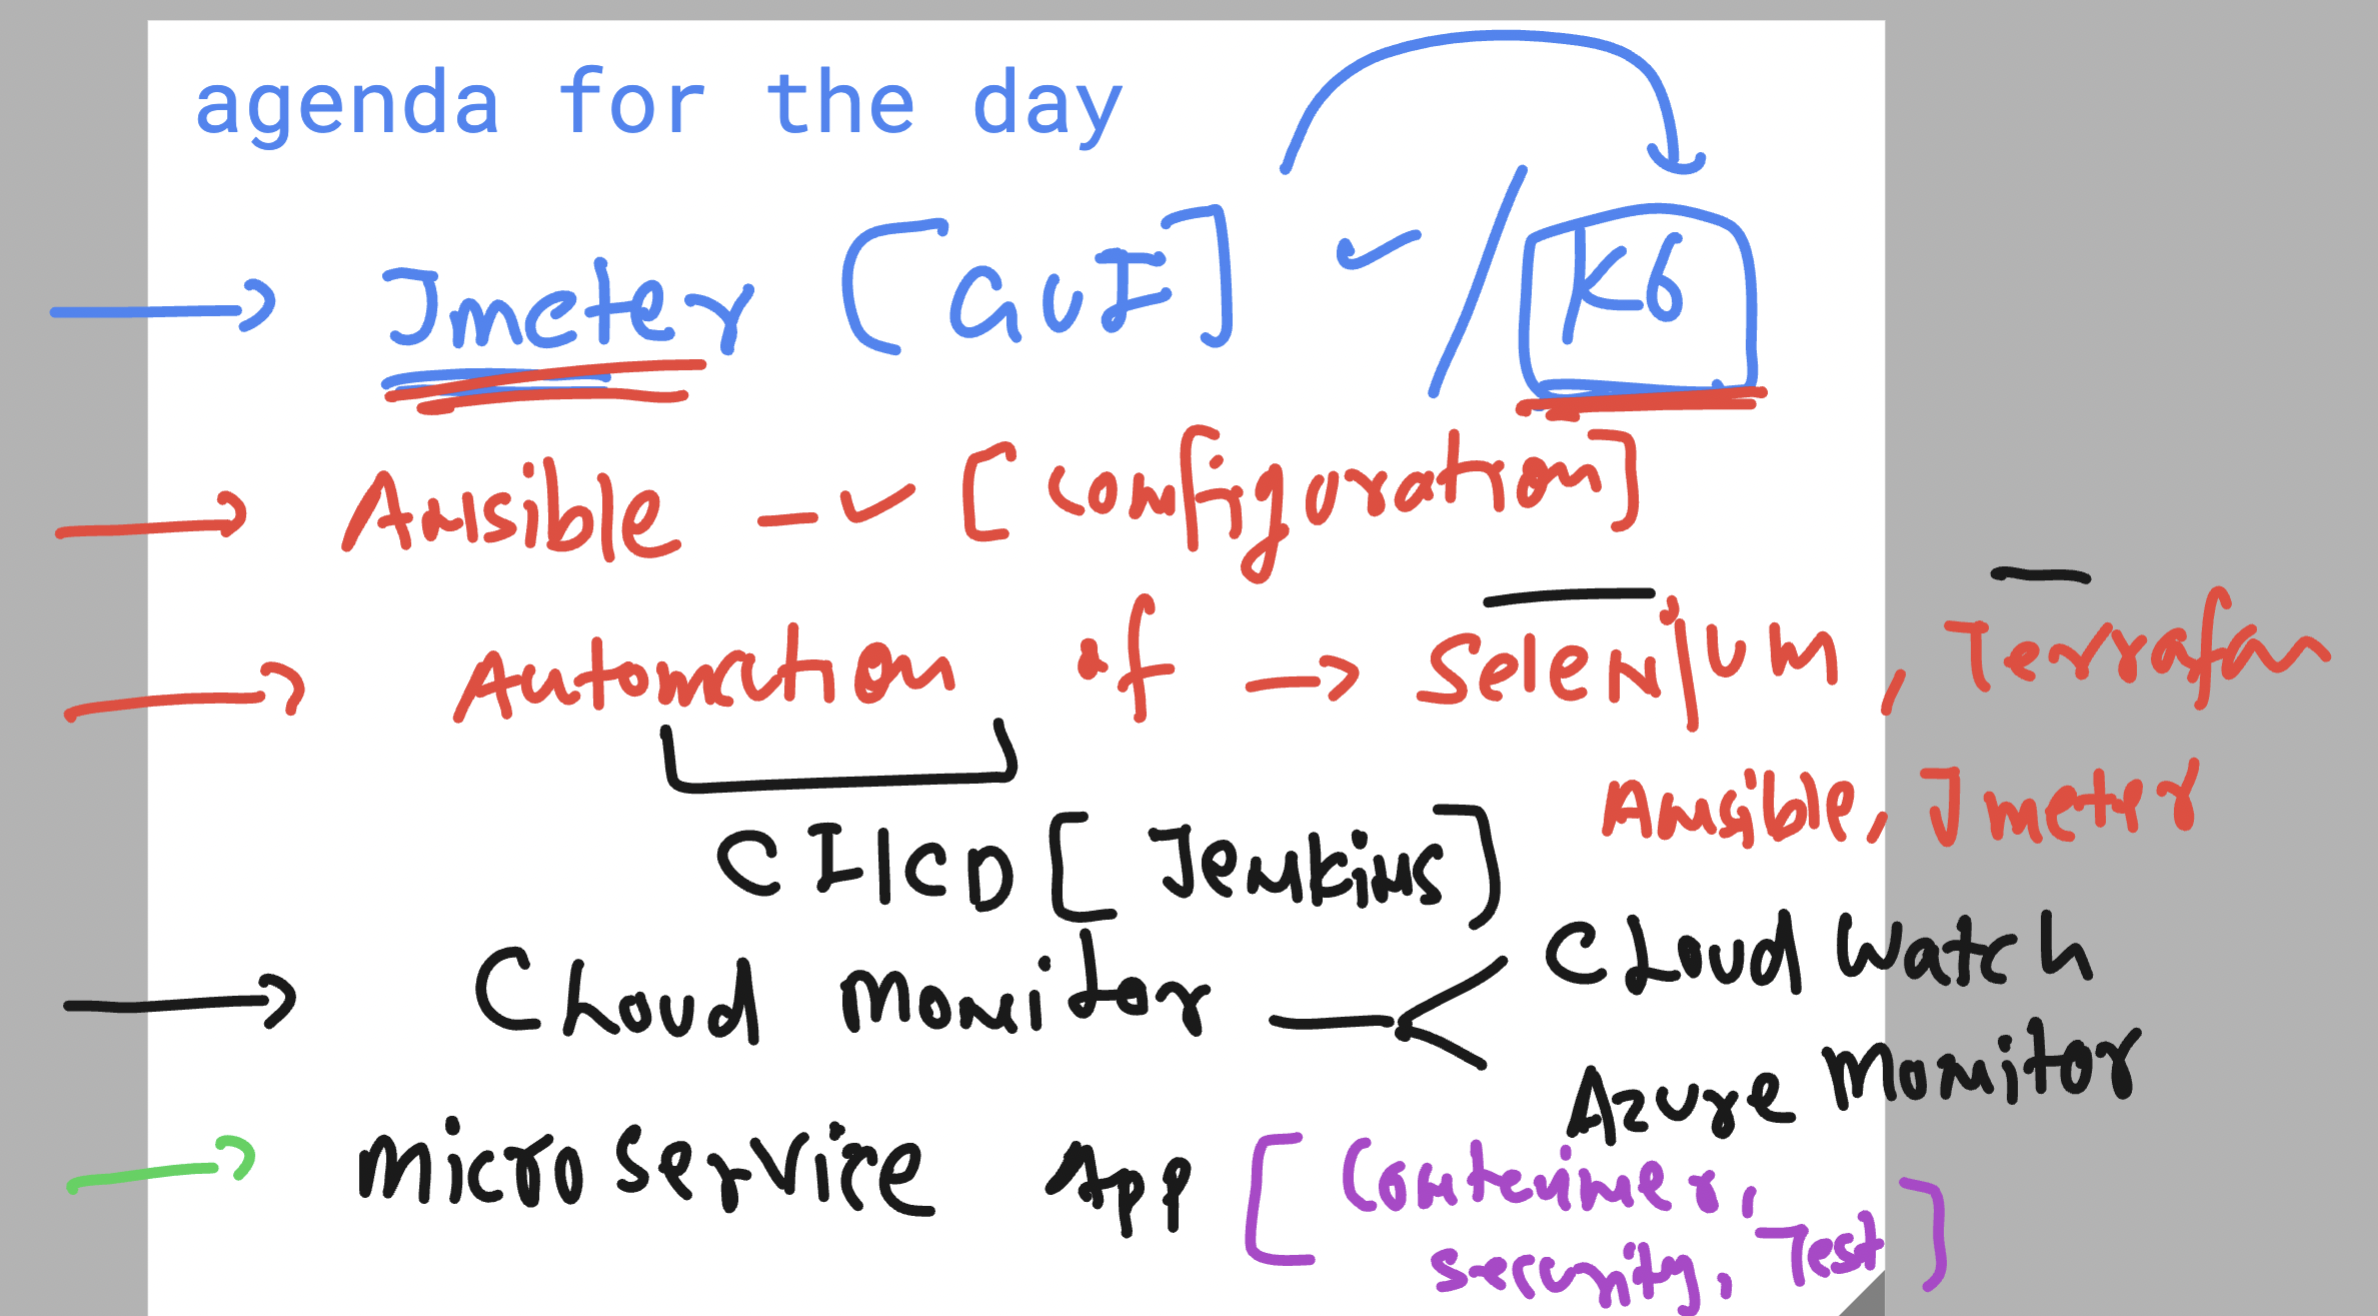 agenda for the day
Jmeter [GUI] / K6
Ansible - [configuration]
Automation of -> Selenium, Terraform
Ansible, Jmeter
CI/CD [Jenkins]
Cloud monitor - Cloud watch
Azure Monitor
Microservice App [Container,
security, Test]